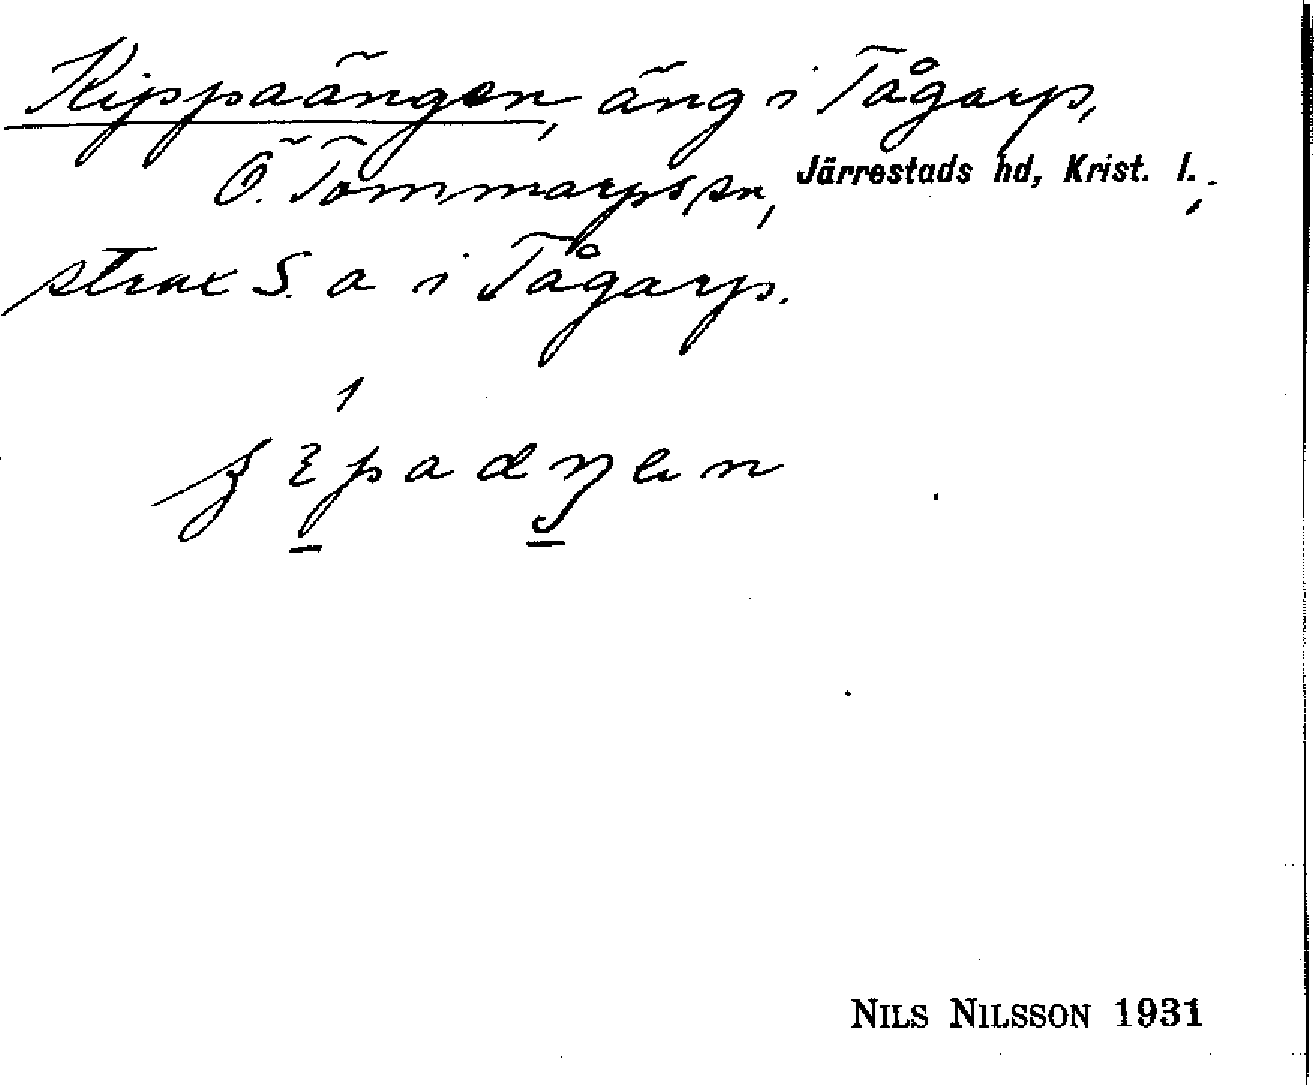 Kippaängen, äng i Tågarp,
Ö. Tommarps sn, Järrestads hd, Krist. l.;
strax S. a i Tågarp.
NILS NILSSON 1931